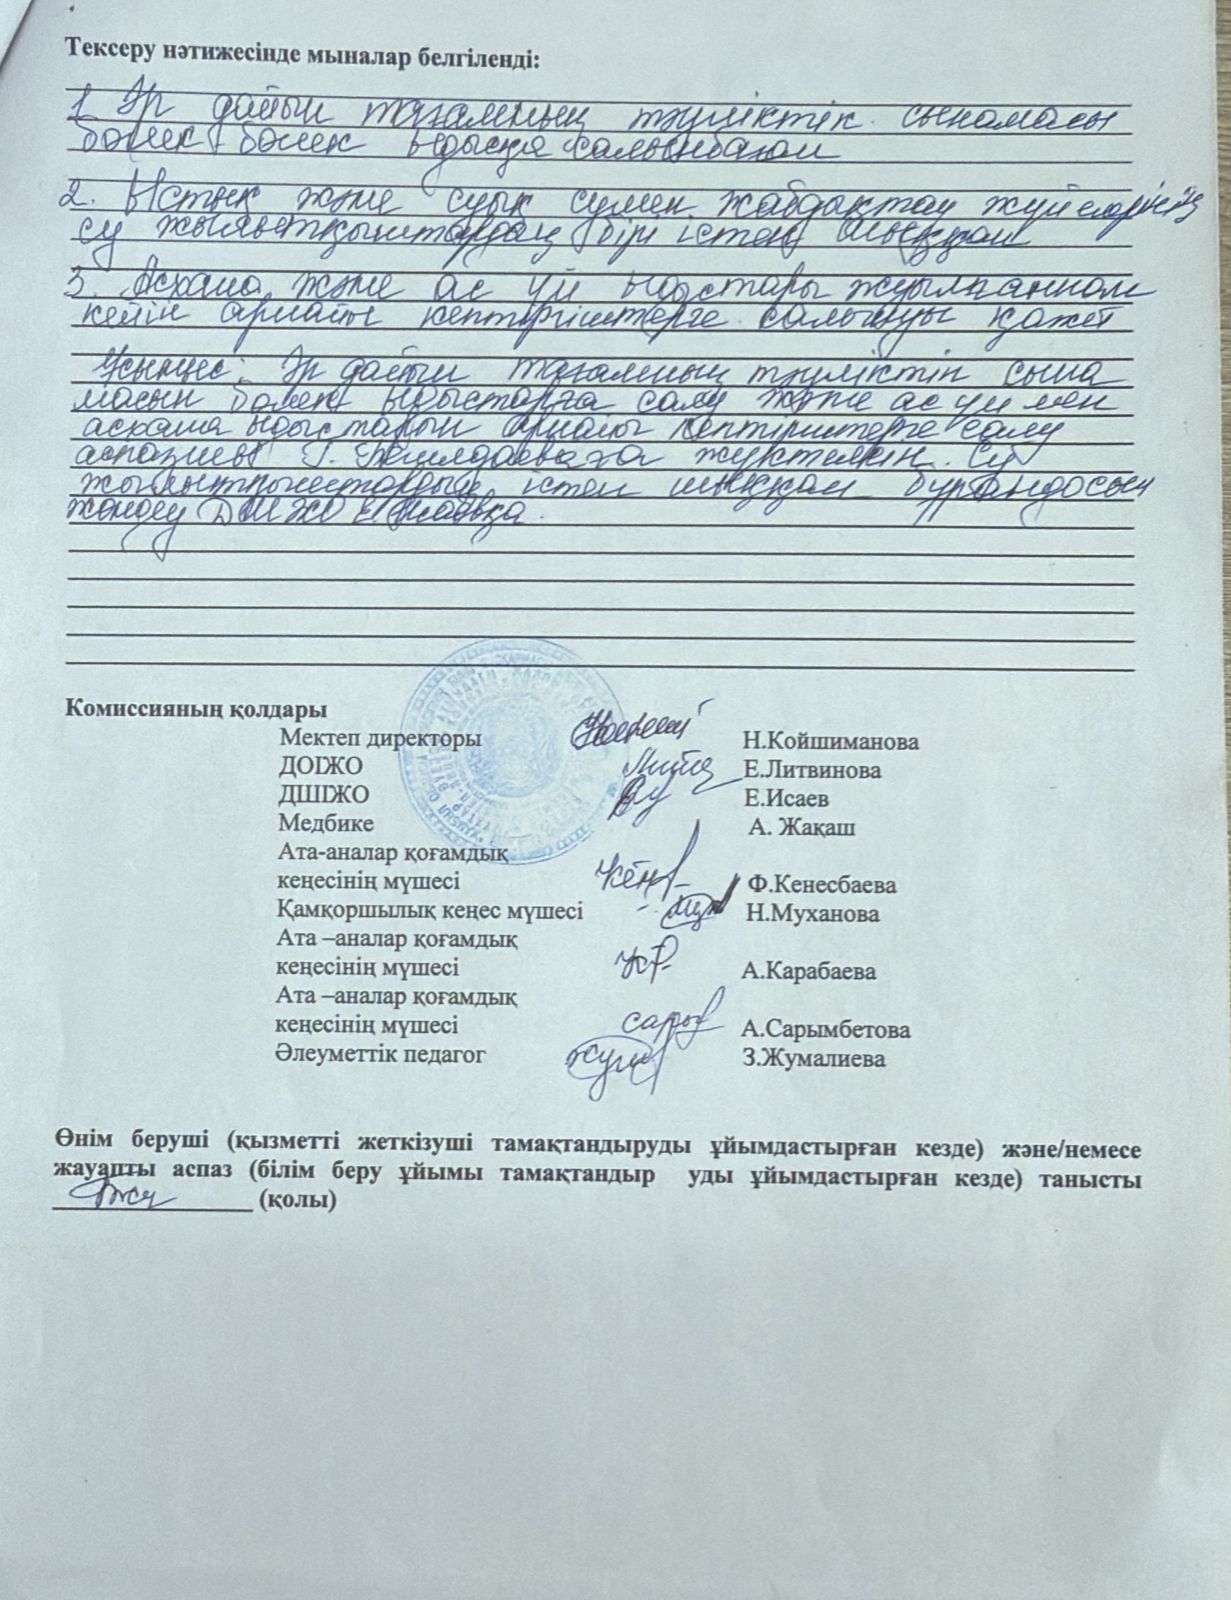 Тексеру нәтижесінде мыналар белгіленді:
1. Әр дайын тағамның тәуліктік сынамасы
бөлек бөлек ыдысқа салынбаған
2. Ыстық және суық сумен жабдақтау жүйелерінің
су жылытқыштардың бірі істен шыққан
3. Асхана және ас үй ыдыстары жуылғаннан
кейін арнайы кептіргіштерге салынуы қажет
Ұсыныс: Әр дайын тағамның тәуліктік сына
масын бөлек ыдыстарға салу және ас үй мен
асхана ыдыстарын арнайы кептіргіштерге салу
аспазшы Г. жүктелсін. Су
жылытқыштардың істен шыққан
жөндеу ДШІЖО Е.Исаевқа.
Комиссияның қолдары
Мектеп директоры Н.Койшиманова
ДОІЖО Е.Литвинова
ДШІЖО Е.Исаев
Медбике А. Жақаш
Ата-аналар қоғамдық
кеңесінің мүшесі Ф.Кенесбаева
Қамқоршылық кеңес мүшесі Н.Муханова
Ата –аналар қоғамдық
кеңесінің мүшесі А.Карабаева
Ата –аналар қоғамдық
кеңесінің мүшесі А.Сарымбетова
Әлеуметтік педагог З.Жумалиева
Өнім беруші (қызметті жеткізуші тамақтандыруды ұйымдастырған кезде) және/немесе
жауапты аспаз (білім беру ұйымы тамақтандыр уды ұйымдастырған кезде) танысты
(қолы)